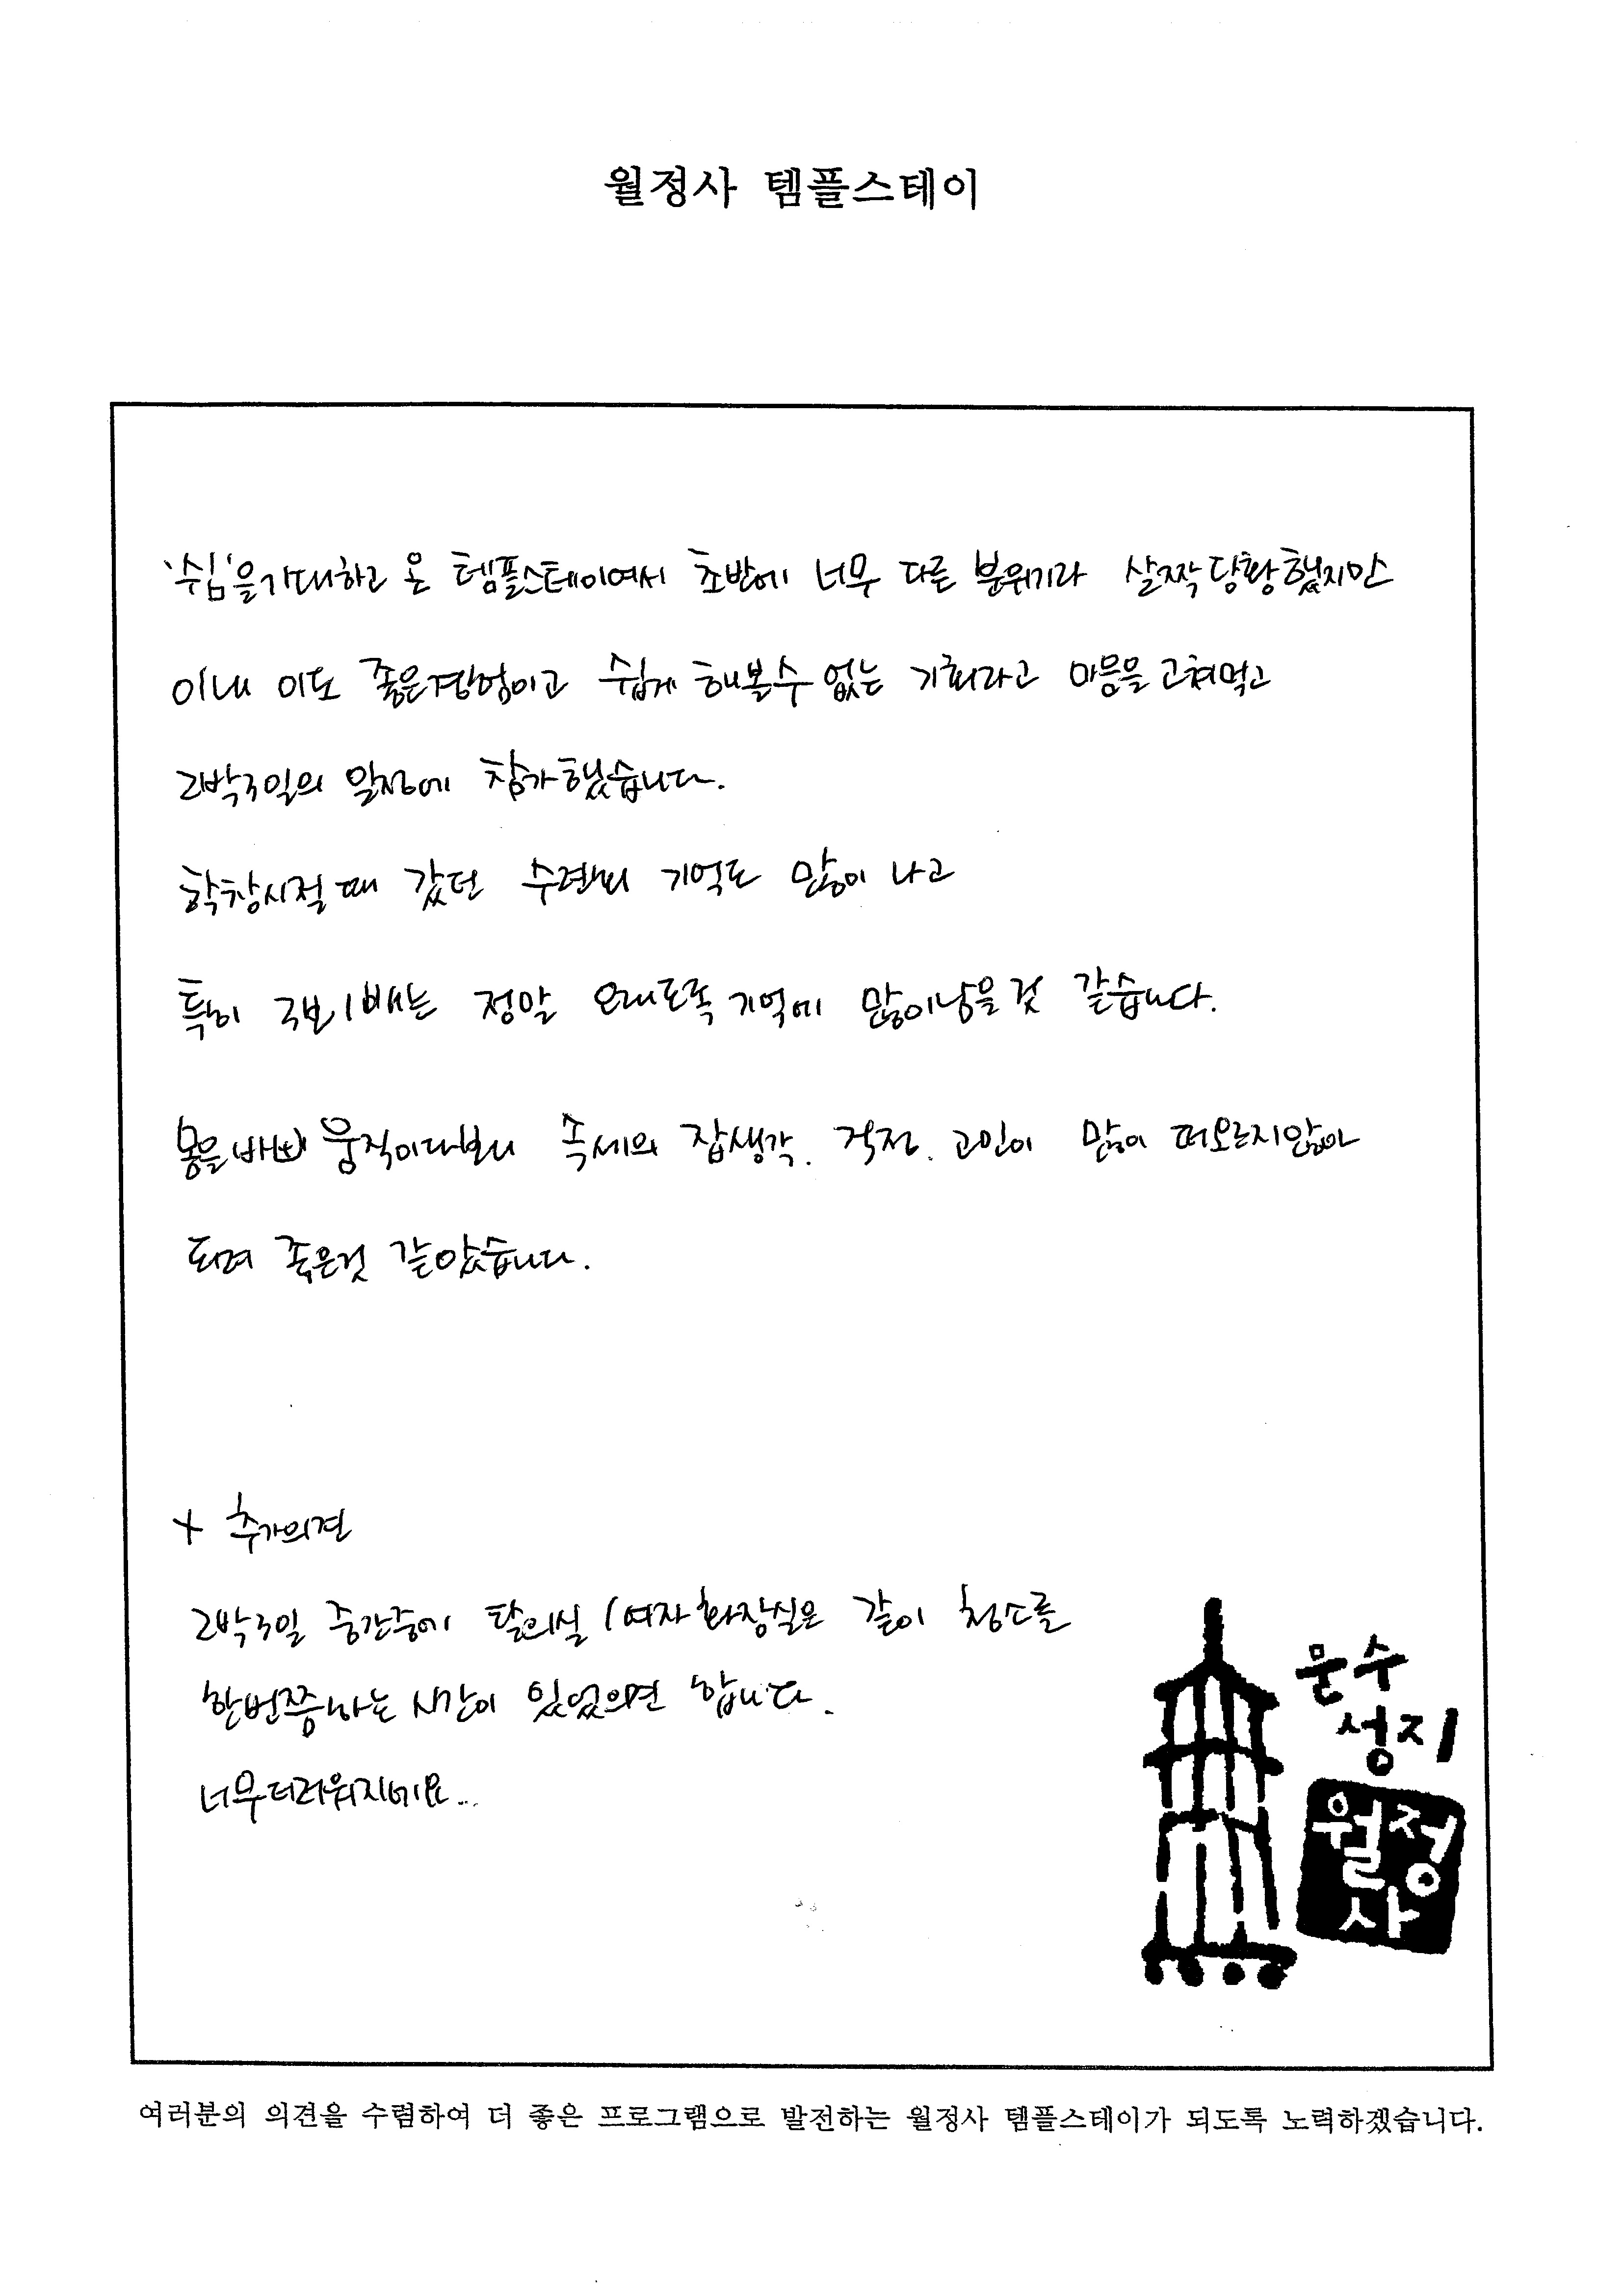 월정사 템플스테이
'쉼'을 기대하고 온 템플스테이여서 초반에 너무 다른 분위기라 살짝 당황했지만
이내 이도 좋은경험이고 쉽게 해볼수 없는 기회라고 마음을 고쳐먹고
2박3일의 일정에 참가했습니다.
학창시절때 갔던 수련회 기억도 많이 나고
특히 3보1배는 정말 오래도록 기억에 많이남을것 같습니다.
몸을바삐 움직이다보니 속세의 잡생각. 걱정. 고민이 많이 떠오르지않아
되려 좋은것 같았습니다.
+ 추가의견
2박3일 중간중에 탈의실 / 여자화장실은 같이 청소를
한번쯤하는 시간이 있었으면 합니다.
너무더러워지네요...
문수
성지
월정
사
여러분의 의견을 수렴하여 더 좋은 프로그램으로 발전하는 월정사 템플스테이가 되도록 노력하겠습니다.